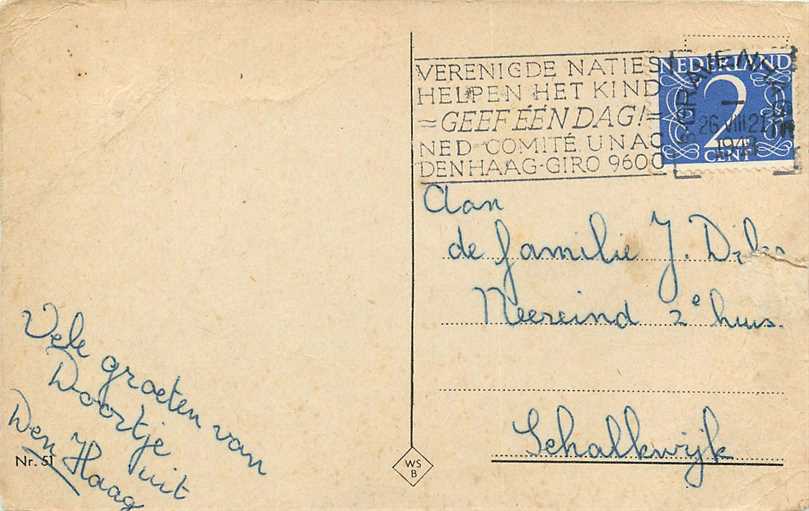 VERENIGDE NATIES
HELPEN HET KIND
=GEEF ÉÉN DAG!=
NED COMITÉ UNAC
DEN HAAG-GIRO 9600
NEDERLAND
2
CENT
26 VIII 21
Aan
de familie J.
Neereind 2e huis.
Schalkwijk
Vele groeten van
Doortje
uit
Den Haag
Nr. 51
WS
B